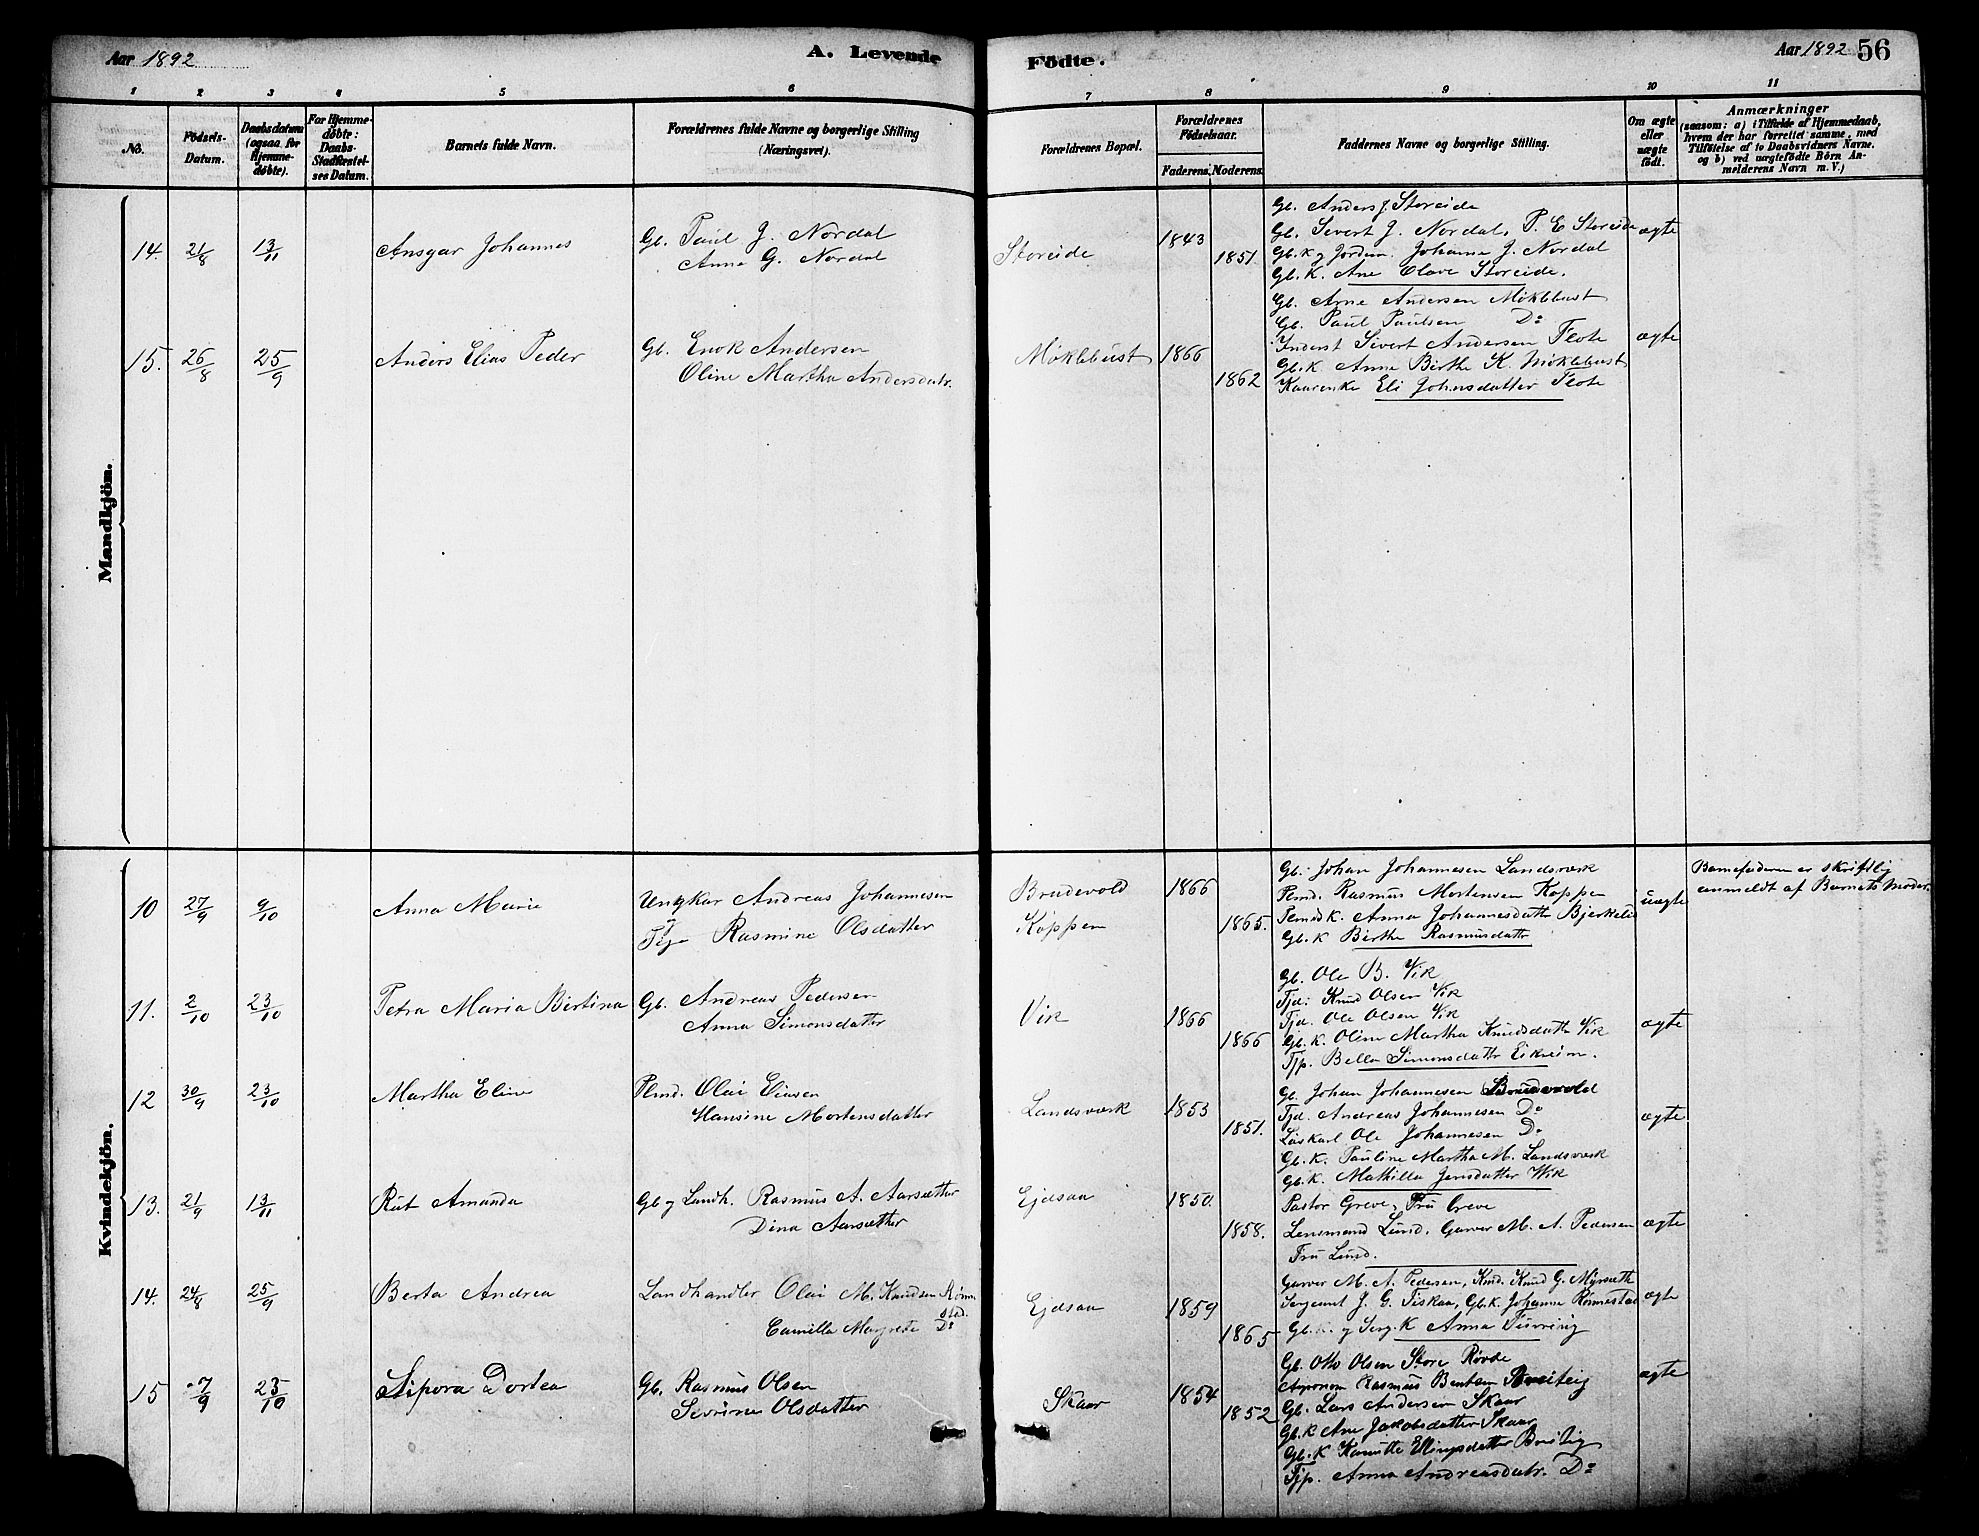 Aar 1892
A. Levende
Födte.
Aar 1892
56
1 2 3 4 5 6 7 8 9 10 11
No.
Födsels-Datum.
Daabsdatum (ogsaa for Hjemme-døbte).
For Hjemme-døbte: Daabs-Stadfæstel-ses Datum.
Barnets fulde Navn.
Forældrenes fulde Navne og borgerlige Stilling (Næringsvei).
Forældrenes Bopæl.
Forældrenes Födselsaar.
Faderens. Moderens.
Faddernes Navne og borgerlige Stilling.
Om ægte eller uægte födt.
Anmærkninger
(saasom: a) i Tilfælde af Hjemmedaab,
hvem der har forrettet samme, med
Tilföielse af to Daabsvidners Navne.
og b) ved uægtefödte Börn An-
melderens Navn m. V.)
Mandkjön.
14. 21/8 13/11 Ansgar Johannes
Gb. Paul J. Nordal
Anne G. Nordal
Storeide 1843 1851
Gb. Anders J. Storeide
Gb. Sivert J. Nordal, P. E Storeide
Gb.K. og Jordm. Johanne J. Nordal
Gb. K. Ane Olave Storeide.
ægte
15. 26/8 25/9 Anders Elias Peder
Gb. Enok Andersen
Oline Martha Andersdatr.
Møklebust 1866 1862
Gb. Arne Andersen Møklebust
Gb. Paul Paulsen Do
Inderst Sivert Andersen Flote
Gb.K Anne Birthe K. Møklebust
Kaarenke Eli Johnsdatter Flote
ægte
Kvindekjön.
10 27/9 9/10 Anna Marie
Ungkar Andreas Johannesen
og
Pige Rasmine Olsdatter
Brudevold
Køppen
1866 1865.
Gb. Johan Johannesen Landsværk
Plmd. Rasmus Mortensen Køppen
Plmds K. Anna Johannesdatter Bjerkelid
Gb. K Birthe Rasmusdattr
uægte
Barnefaderen er skriftlig
anmeldt af Barnets Moder.
11. 2/10 23/10 Petra Maria Bertina
Gb. Andreas Pedersen
Anna Simonsdatter
Vik 1866 1866
Gb. Ole B. Vik
Tjd. Knud Olsen Vik
Tjd. Ole Olsen Vik
Gb. K. Oline Martha Knudsdattr Vik
Tjp. Bella Simonsdattr Eikreim.
ægte
12 30/9 23/10 Martha Eline
Plmd. Olai Eliasen
Hansine Mortensdatter
Landsværk 1853 1851.
Gb. Johan Johannesen Brudevold
Tjd. Andreas Johannesen Do
Løskarl Ole Johannesen Do
Gb. K. Pauline Martha M. Landsværk
Gb. K. Mathilde Jensdatter Vik
ægte.
13. 21/9 13/11 Rut Amanda
Gb og Landh. Rasmus A. Aarsæther
Dina Aarsæther
Ejdsaa 1850. 1858.
Pastor Greve, Fru Greve
Lensmand Lund. Garver M. A. Pedersen
Fru Lund.
ægte
14. 24/8 25/9 Berta Andrea
Landhandler Olai M. Knudsen Rønne
stad.
Camilla Margrete Do
Ejdsaa 1859 1865
Garver M. A. Pedersen, Kmd. Knud G. Myrsæth
Sergeant J. G. Fiskaa, Gb.K. Johanne Rønnestad
Gb. K. og Serg. K Anna
ægte
15 7/9 23/10 Sipora Dortea
Gb. Rasmus Olsen
Sevrine Olsdatter
Skaar 1854 1852
Gb. Otto Olsen Store Røvde
Rasmus Bentsen Breiteig
Gb. Lars Andersen Skaar
Gb.K Ane Jakobsdatter Skaar
Gb. K Kanutte Ellingsdatter Breiteig
Tjp. Anna Andreasdatr. Do
ægte